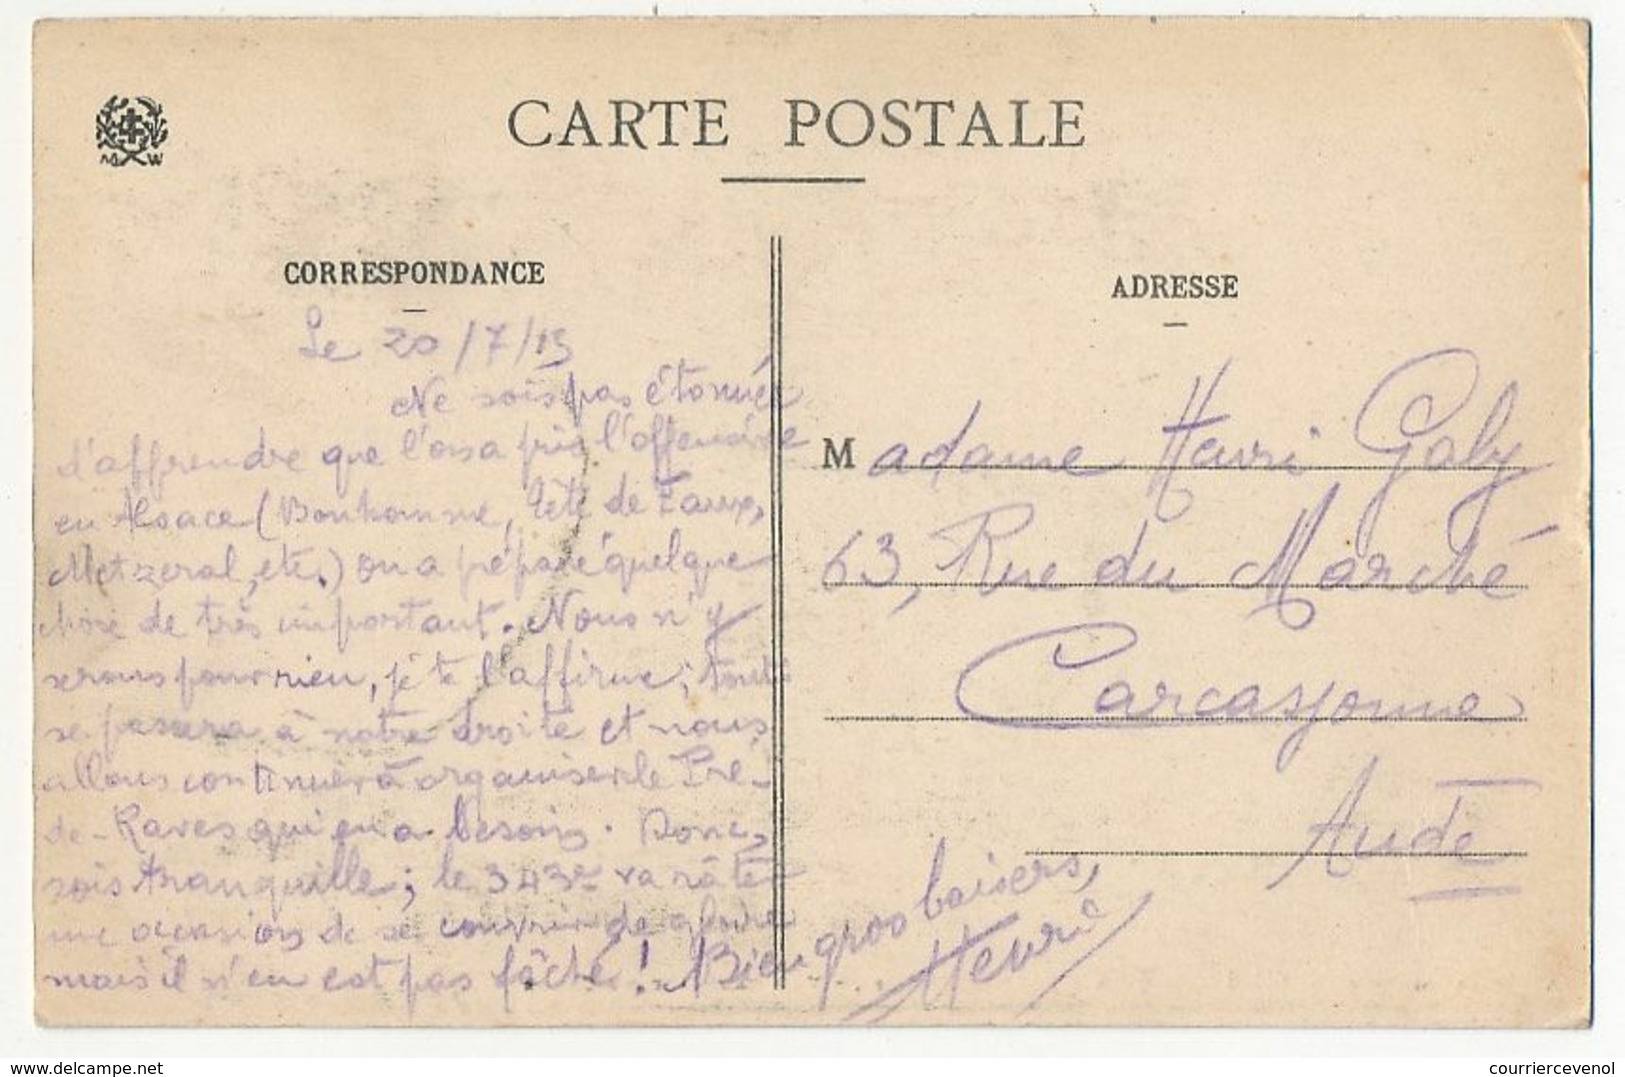 CARTE POSTALE
M W
CORRESPONDANCE
Le 20/7/15
Ne sois pas étonnée
d'apprendre que l'on a pris l'offensive
en Alsace (Bonhomme, Tête de Faux,
Metzeral, etc.) on a préparé quelque
chose de très important. Nous n'y
serons pour rien, je te l'affirme; tout
se passera à notre droite et nous
allons continuer à organiser le Pré-
de-Raves qui en a besoin. Donc,
sois tranquille; le 343e va râter
une occasion de se couvrir de gloire
mais il n'en est pas fâché! Bien gros baisers,
Henri
ADRESSE
Madame Henri Galy
63, Rue du Marché
Carcassonne
Aude
www.delcampe.net
courriercevenol